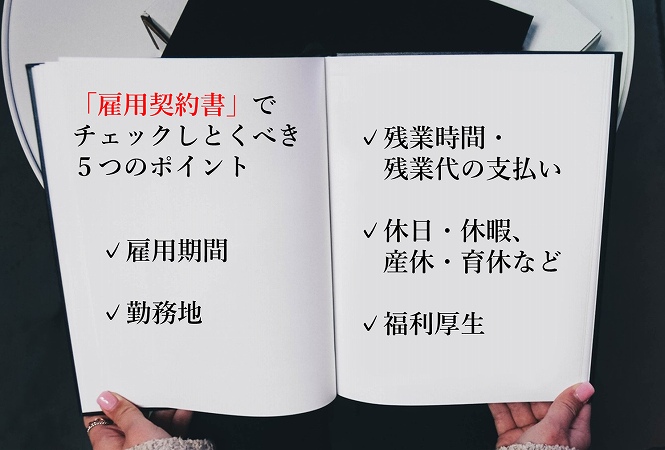 「雇用契約書」で
チェックしとくべき
５つのポイント
✓雇用期間
✓勤務地
✓残業時間・
残業代の支払い
✓休日・休暇、
産休・育休など
✓福利厚生